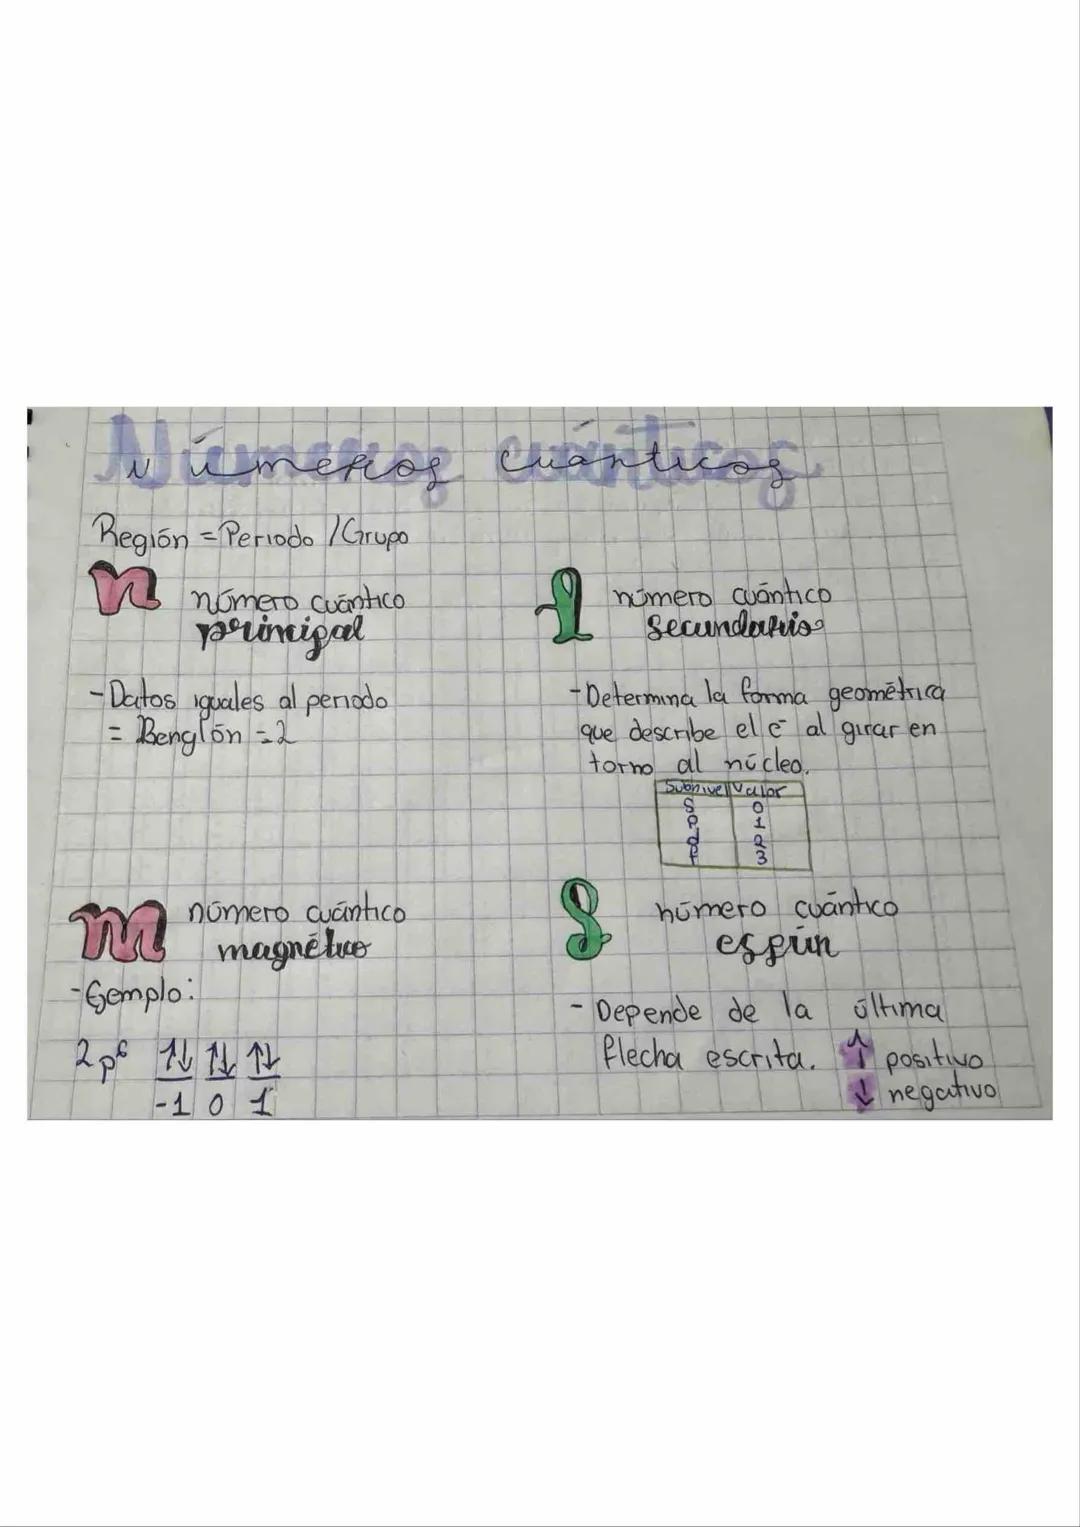 Números cuánticos
Región = Periodo / Grupo
n número cuántico
principal
- Datos iguales al periodo
= Benglón = 2
l número cuántico
secundario
- Determina la forma geométrica
que describe el e⁻ al girar en
torno al núcleo.
Subnivel Valor
S 0
P 1
d 2
f 3
m número cuántico
magnético
- Ejemplo:
2p⁶ ↑↓ ↑↓ ↑↓
-1 0 1
S número cuántico
espín
- Depende de la última
flecha escrita. ↑ positivo
↓ negativo